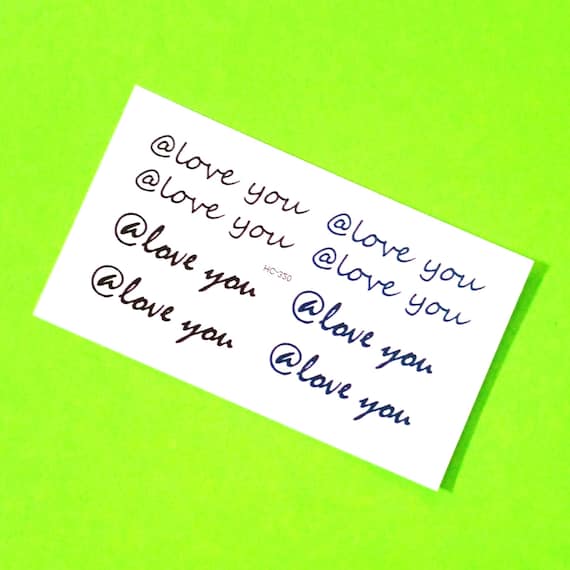 @love you
@love you
@love you
@love you
HC-350
@love you
@love you
@love you
@love you